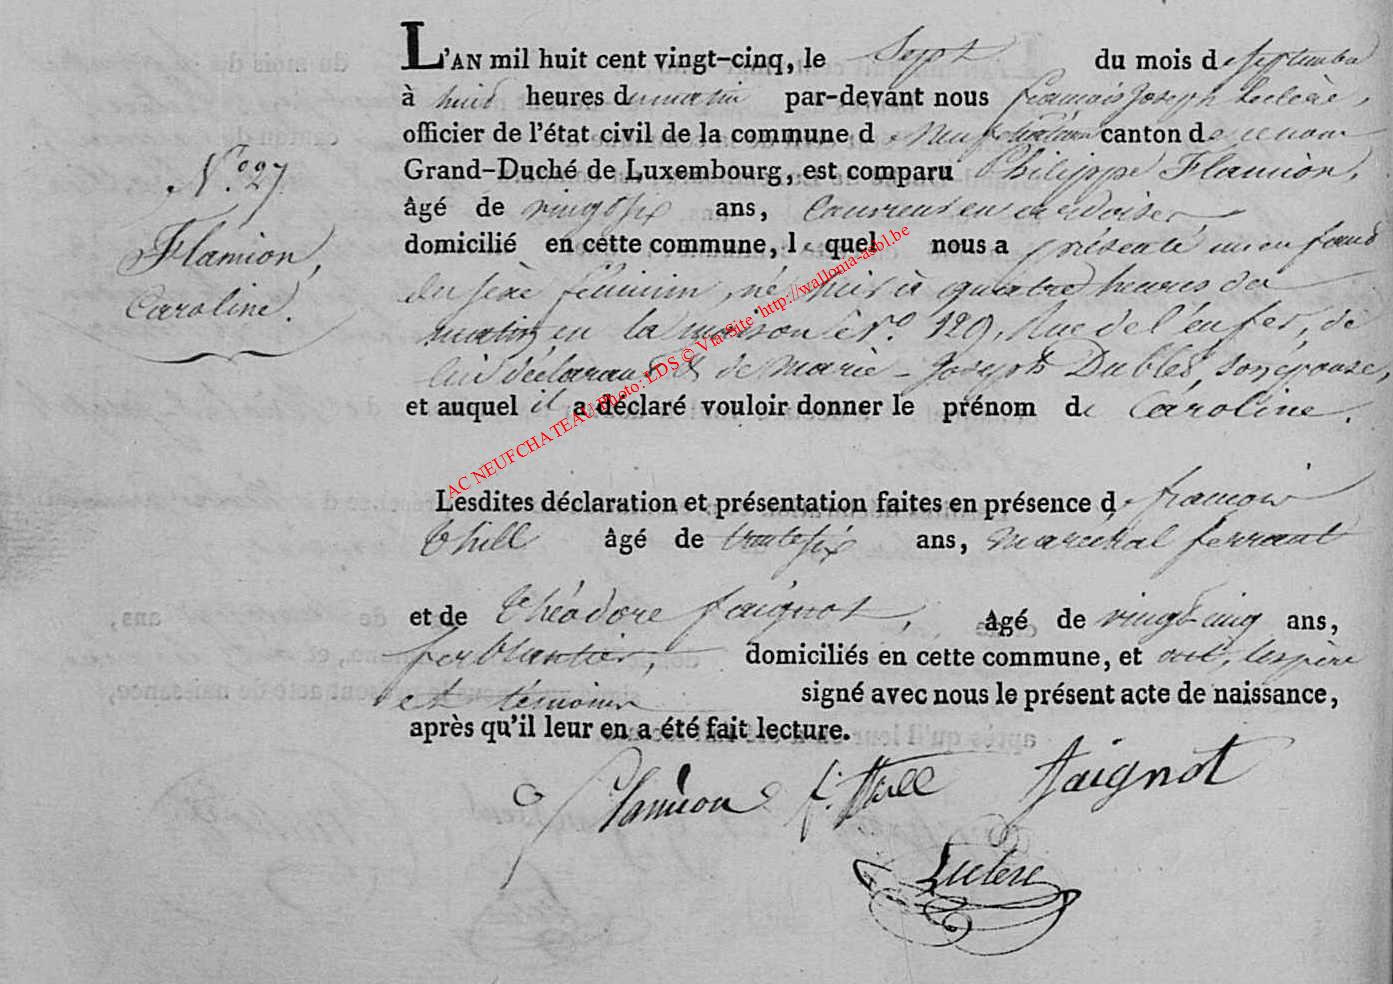 L'AN mil huit cent vingt-cinq, le Sept du mois de Septembre
à huit heures du matin par-devant nous françois Joseph Leclere,
officier de l'état civil de la commune de Neufchateau canton de ce nom
Grand-Duché de Luxembourg, est comparu Philippe Flamion,
âgé de vingt six ans, couvreur en ardoises
domicilié en cette commune, lequel nous a présenté un enfant
du sexe féminin, né hier à quatre heures du
matin en la maison N.º 129, Rue de l'enfer, de
lui déclarant & de Marie-Joseph Dublés, son épouse,
et auquel il a déclaré vouloir donner le prénom de Caroline.
N.º 27
Flamion,
Caroline.
Lesdites déclaration et présentation faites en présence de françois
Thill âgé de trente six ans, maréchal ferrant
et de Théodore faignot, âgé de vingt cinq ans,
ferblantier, domiciliés en cette commune, et ont, les père
et témoins signé avec nous le présent acte de naissance,
après qu'il leur en a été fait lecture.
Flamion f. Thill faignot
Leclere
AC NEUFCHATEAU Photo: LDS © Via Site http://wallonia-asbl.be